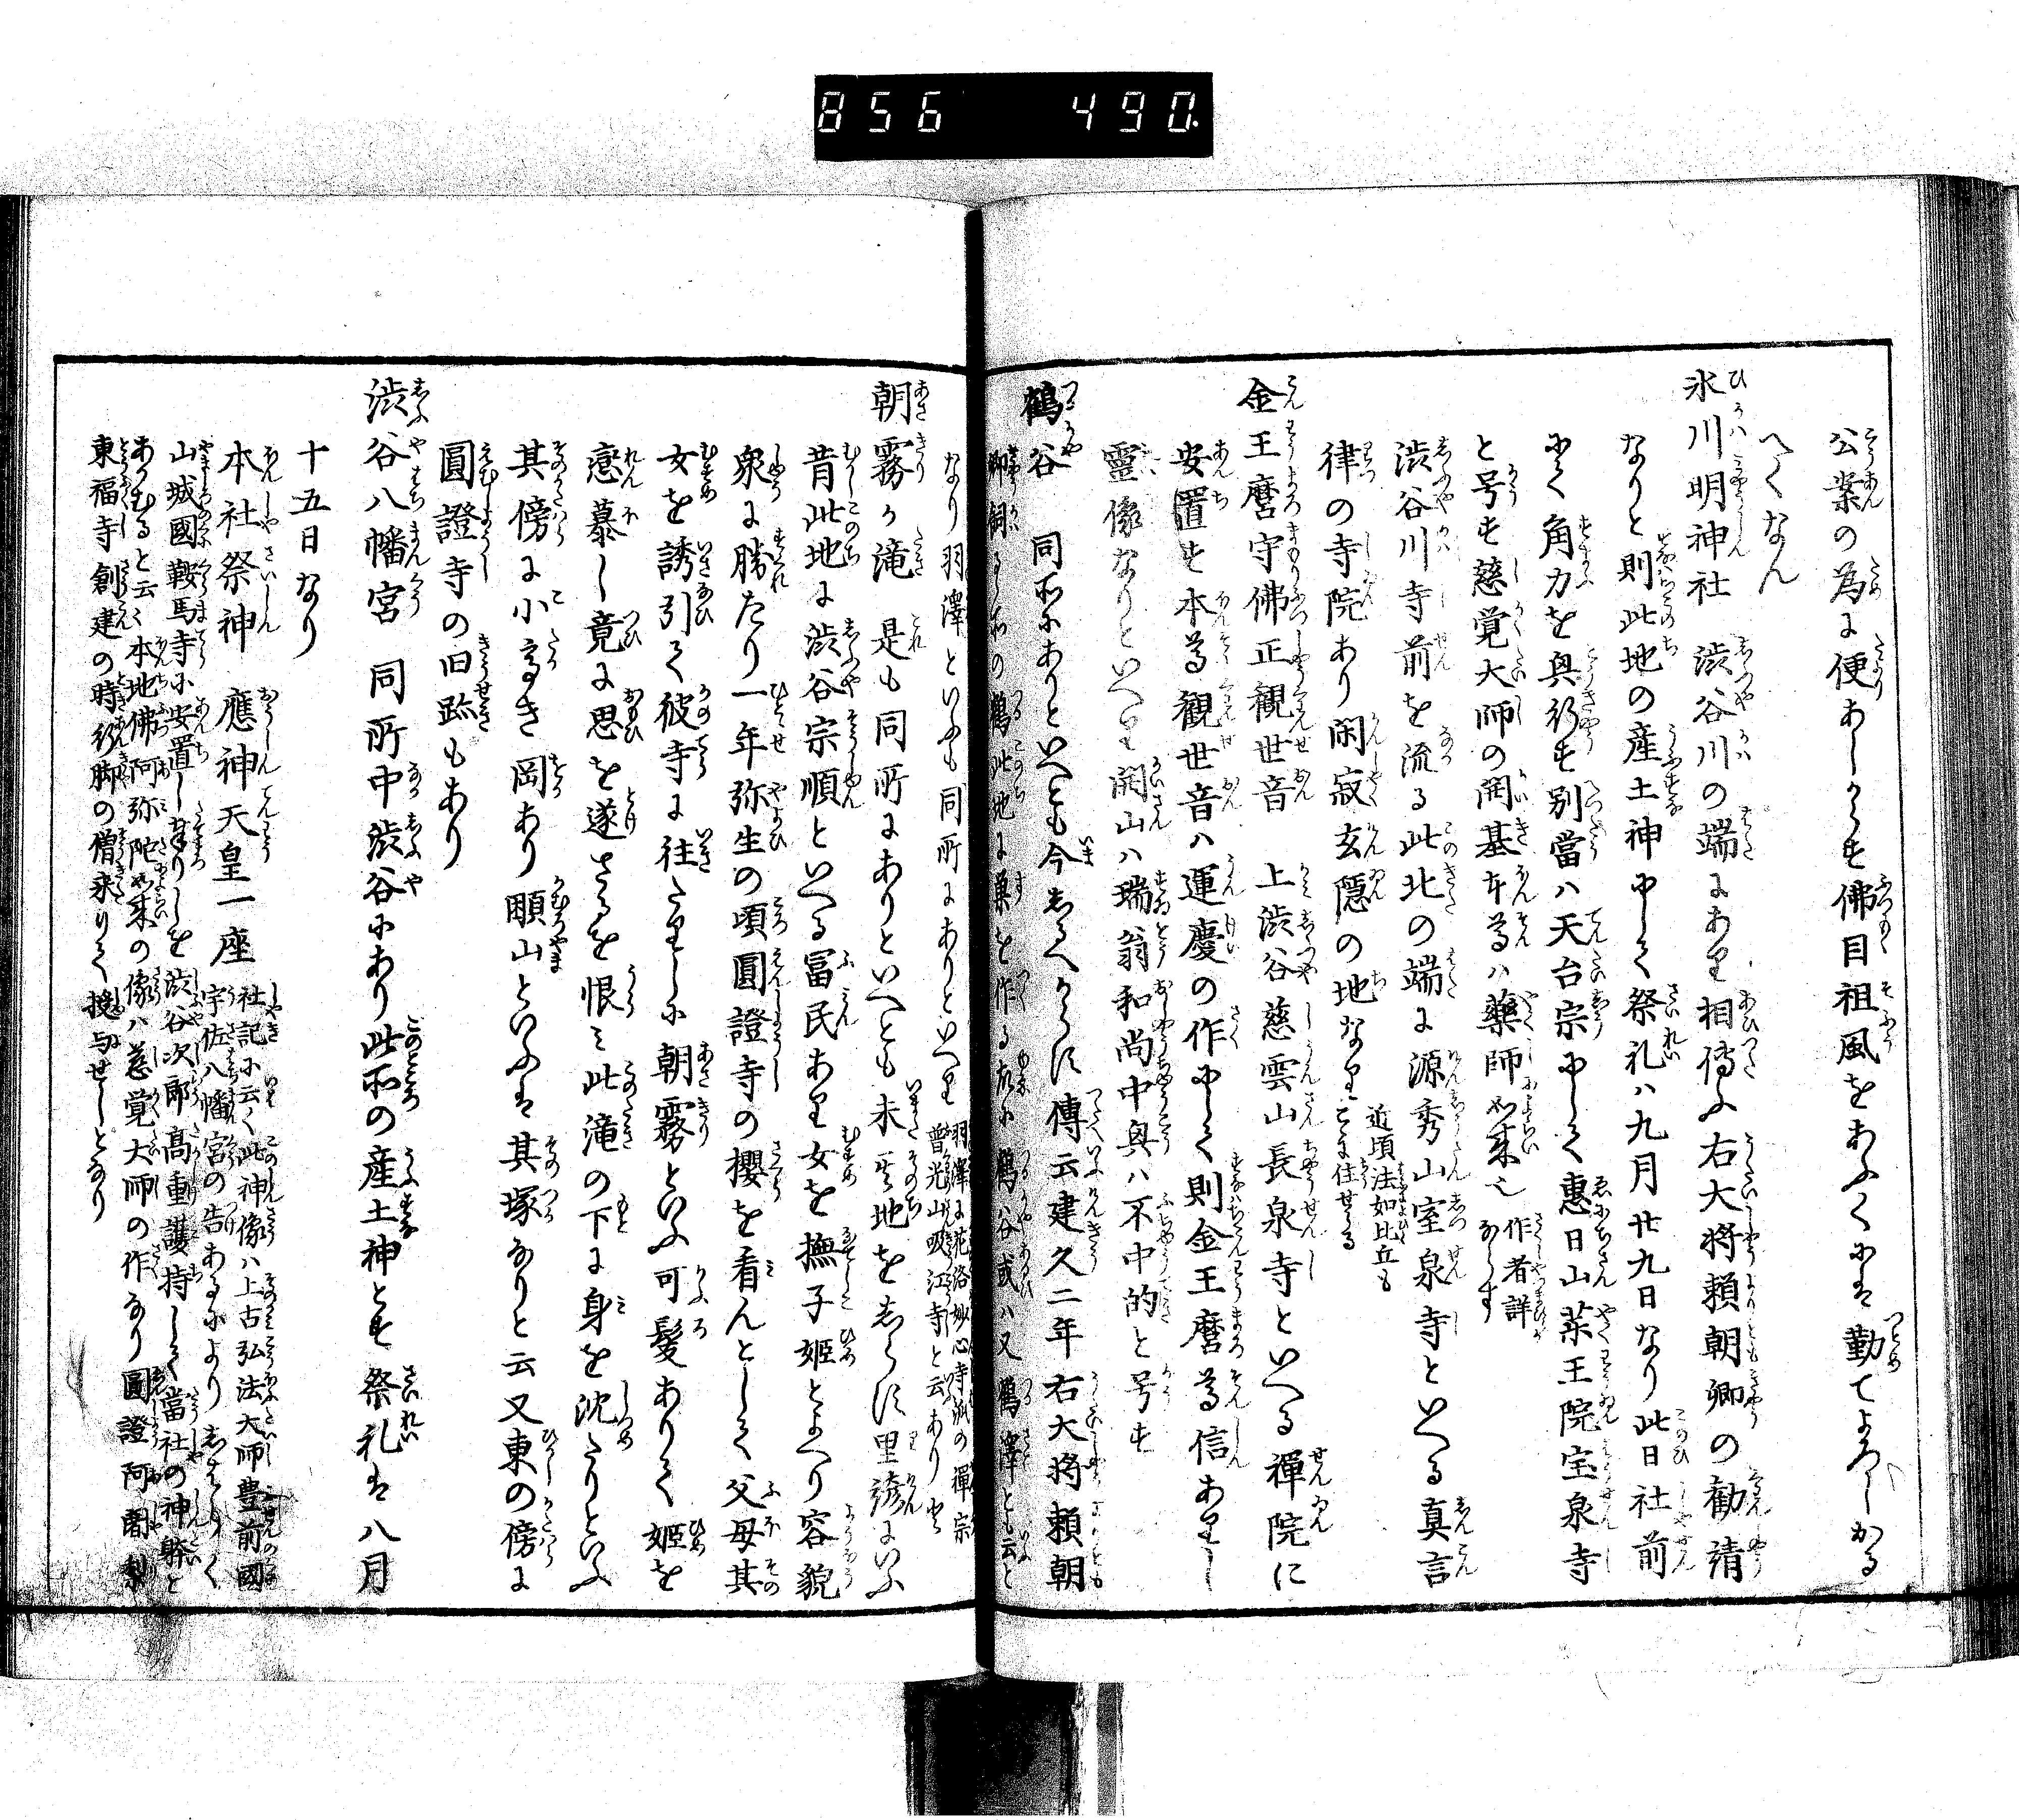 856 490.
公案の為に便あしからす佛目祖風をあふくには勤てよろしかる
へくなん
氷川明神社 渋谷川の端にあり相傳ふ右大将頼朝卿の勧請
なりと則此地の産土神にして祭礼ハ九月廿九日なり此日社前
にて角力を興行す別當ハ天台宗にして惠日山薬王院宝泉寺
と号す慈覚大師の開基本尊ハ藥師如来也 作者詳ならす
渋谷川寺前を流る此北の端に源秀山室泉寺といへる真言
律の寺院あり閑寂玄隠の地なり 近頃法如比丘もこゝに住せらる
金王麿守佛正観世音 上渋谷慈雲山長泉寺といへる禅院に
安置す本尊観世音ハ運慶の作にして則金王麿尊信ありし
靈像なりといへり開山ハ瑞翁和尚中興ハ不中的と号す
鶴谷 同所にありといへとも今しるへからす傳云建久二年右大将頼朝
卿飼るゝ所の鶴此地に巣を作る故に鶴谷或ハ又鶴澤とも云と
なり羽澤といふも同所にありといへり 羽澤に花洛妙心寺派の禅宗
普光山吸江寺と云あり
朝霧か滝 是も同所にありといへとも未其地をしらす里諺にいふ
昔此地に渋谷宗順といへる冨民あり女を撫子姫とよへり容貌
衆に勝たり一年弥生の頃圓證寺の櫻を看んとして父母其
女を誘引て彼寺に往たりしに朝霧といふ可髪ありて姫を
戀慕し竟に思を遂さるを恨ミ此滝の下に身を沈たりといふ
其傍に小高き岡あり顱山といふは其塚なりと云又東の傍に
圓證寺の旧跡もあり
渋谷八幡宮 同所中渋谷にあり此所の産土神とす祭礼は八月
十五日なり
本社祭神 應神天皇一座 社記に云く此神像ハ上古弘法大師豊前國
宇佐八幡宮の告あるによりしはらく
山城國鞍馬寺に安置しありしを渋谷次郎髙重護持して當社の神躰と
あかむると云く本地佛阿弥陀如来の像ハ慈覚大師の作なり圓證阿闍梨
東福寺創建の時行脚の僧来りて授与せしとなり